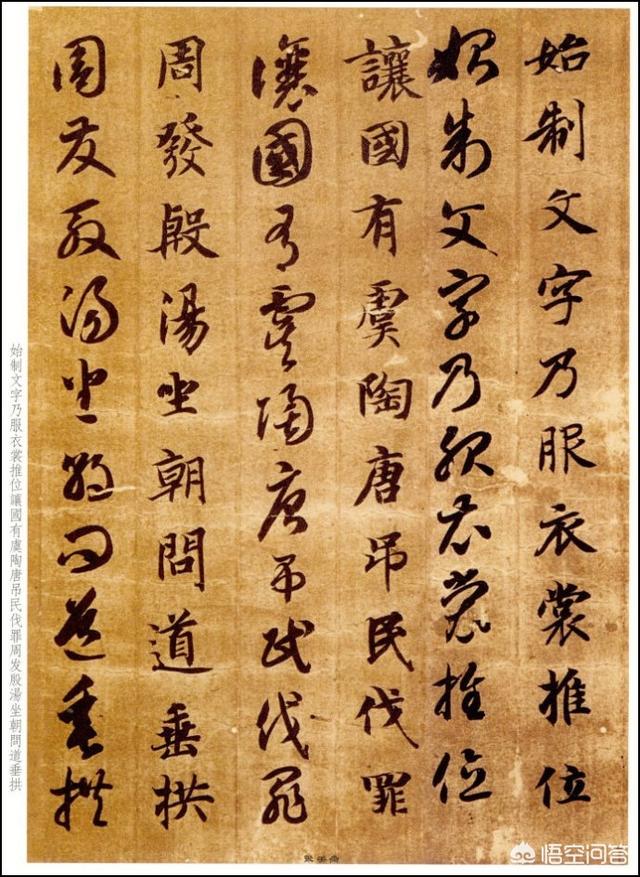 始制文字乃服衣裳推位
始制文字乃服衣裳推位
讓國有虞陶唐吊民伐罪
讓國有虞陶唐吊民伐罪
周發殷湯坐朝問道垂拱
周發殷湯坐朝問道垂拱
始制文字乃服衣裳推位讓國有虞陶唐吊民伐罪周发殷湯坐朝問道垂拱
悟空问答